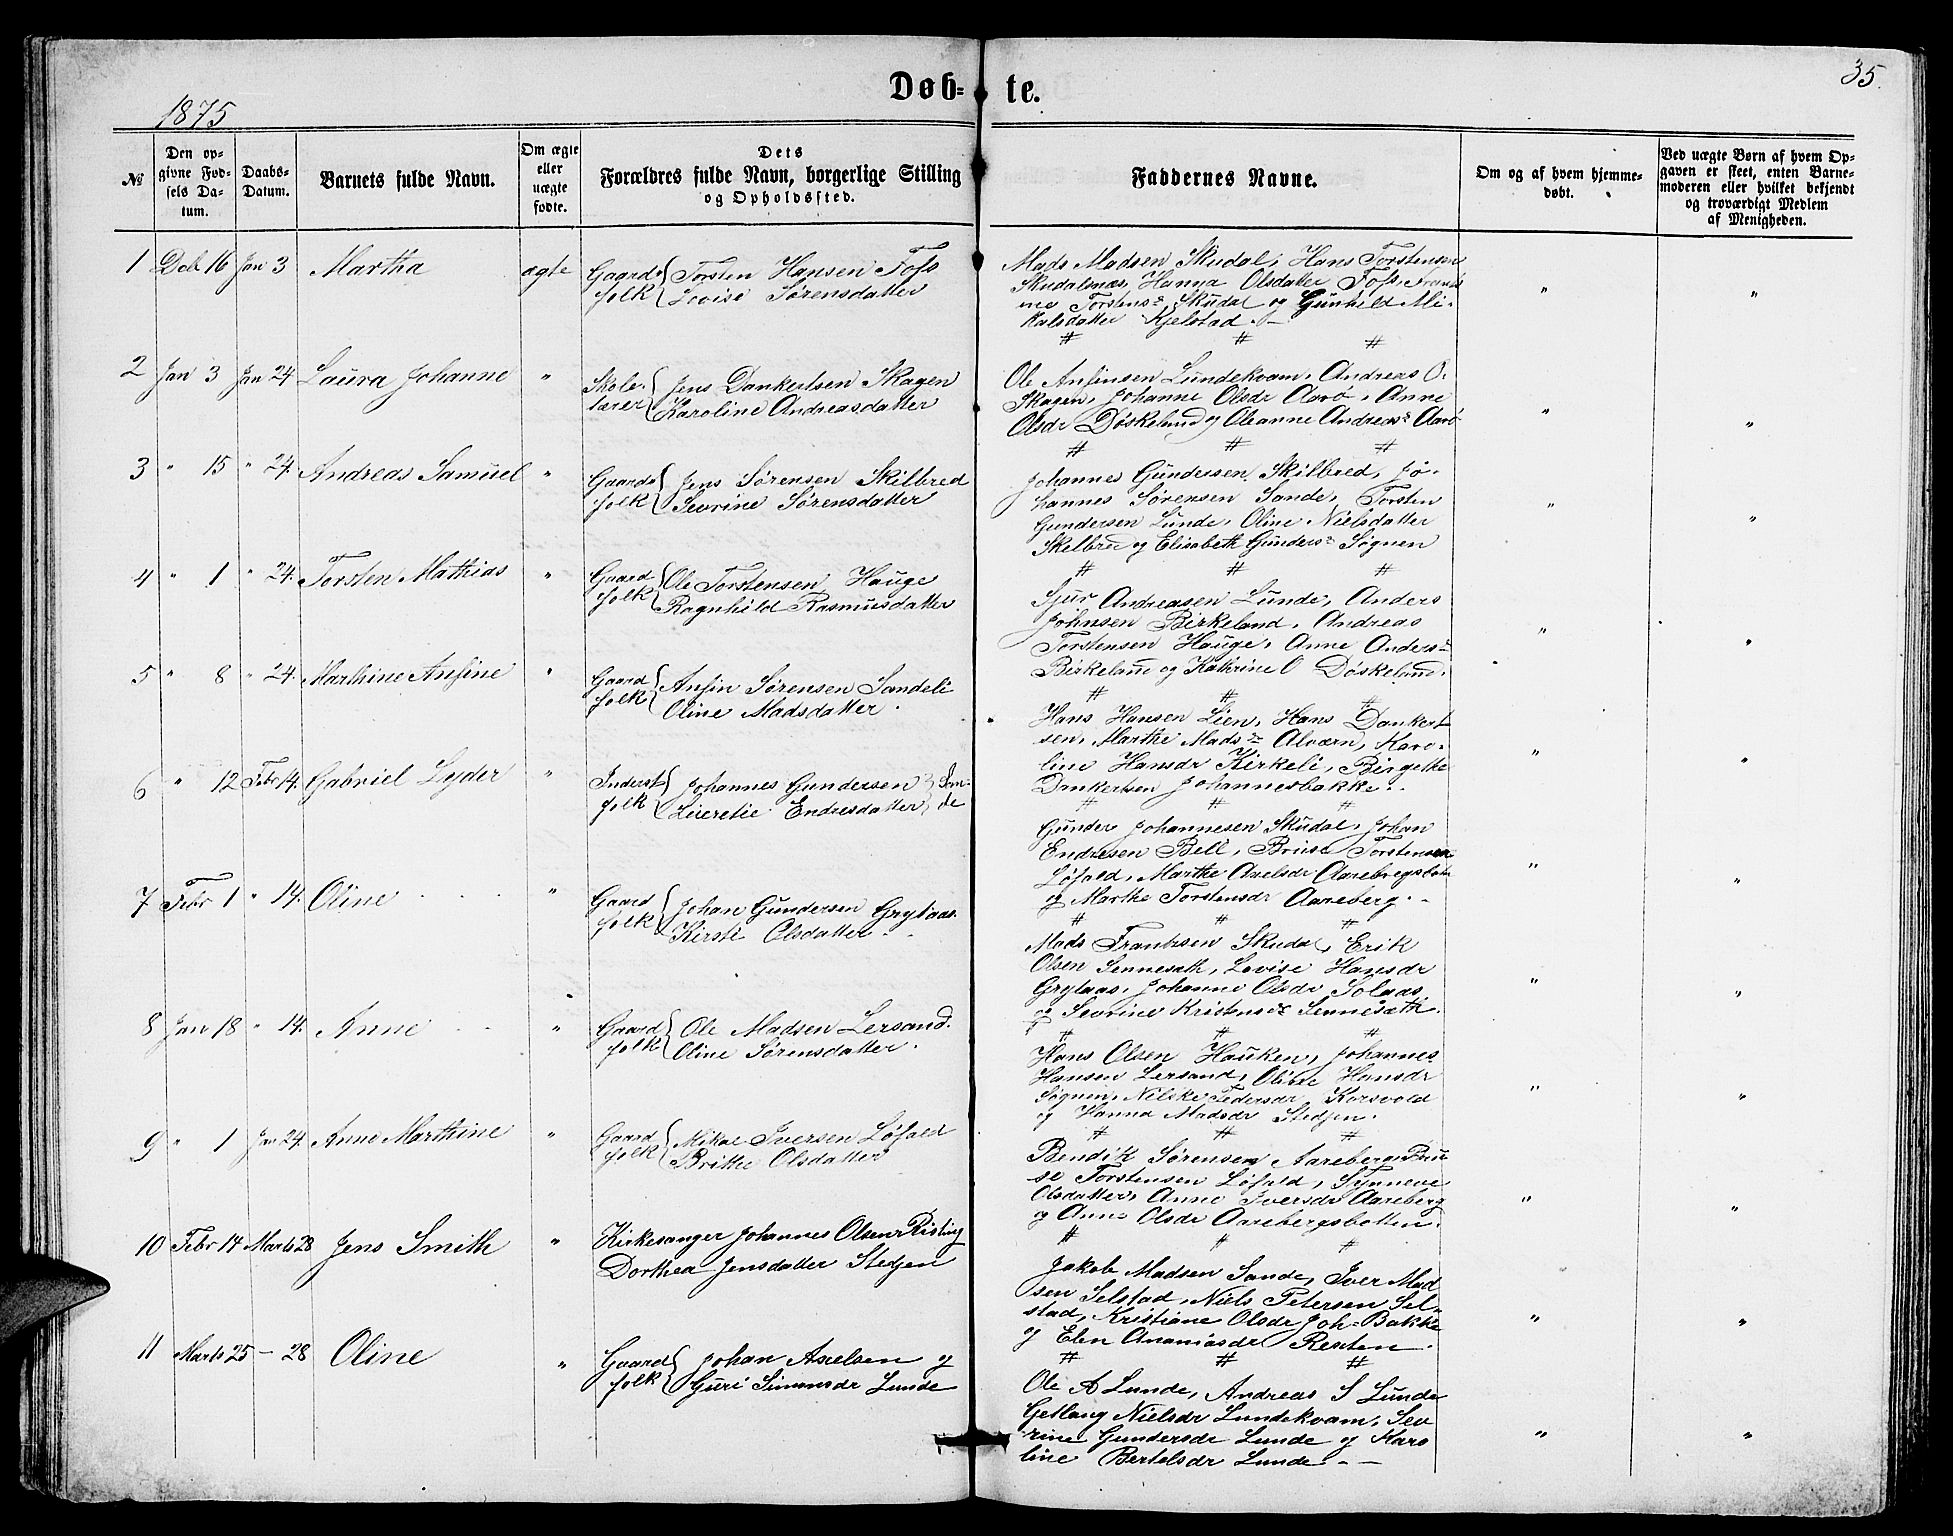 Døb- te.
35.
1875
№
Den op-
givne Fød-
sels Da-
tum.
Daabs-
Datum.
Barnets fulde Navn.
Om ægte
eller
uægte
fødte.
Dets
Forældres fulde Navn, borgerlige Stilling
og Opholdssted.
Faddernes Navne.
Om og af hvem hjemme-
døbt.
Ved uægte Børn af hvem Op-
gaven er skeet, enten Barne-
moderen eller hvilket bekjendt
og troværdigt Medlem
af Menigheden.
1 Deb 16 Jan 3 Martha ægte Gaards Torsten Hansen Foss
folk Lovise Sørensdatter
Mads Madsen Skudal, Hans Torstensen
Skudalsnæs, Hanna Olsdatter Foss,
ne Torstens= Skudal og Gunhild Mi-
kalsdatter Kjelstad. -
# # #
2 Jan 3 Jan 24 Laura Johanne " Skole- Jens Dankertsen Skagen
lærer Karoline Andreasdatter
Ole Ansinsen Lundekvam, Andreas O.
Skagen, Johanne Olsdr Aarø, Anne
Olsdr Døskeland og Oleanne Andreas= Aarø
" "
# # #
3 " 15 " 24. Andreas Samuel " Gaards Jens Sørensen Skilbred
folk Sevrine Sørensdatter
Johannes Gundersen Skilbred, Jo-
hannes Sørensen Sande, Torsten
Gundersen Lunde, Oline Nielsdatter
Skilbred og Elisabeth Gunders= Søgnen
" "
# # #
4 " 1 " 24. Torsten Mathias " Gaard Ole Torstensen Hauge
folk Ragnhild Rasmusdatter
Sjur Andreasen Lunde, Anders
Johnsen Birkeland, Andreas
Torstensen Hauge, Anne Anders=
Birkeland og Kathrine O Døskeland.
" "
# # #
5 " 8 " 24. Marthine Ansine " Gaard Ansin Sørensen Sandeli
folk Oline Madsdatter.
Hans Hansen Lien, Hans Dankert
sen, Marthe Mads= Alværn, Karo-
line Hansdr Kirkeli, Birgitte
Dankertsen Johannesbakke.
" "
# # #
6 " 12 Febr 14. Gabriel Lyder " Inderst Johannes Gundersen San-
folk Lucretie Endresdatter de
Gunder Johannesen Skudal, Johan
Endresen Bell, Bruse Torstensen
Løfald, Marthe Axelsdr Aarebergsbotn
og Marthe Torstensdr Aareberg. -
" "
# # #
7 Febr 1 " 14. Oline " Gaard Johan Gundersen Grytaas.
folk Kirsti Olsdatter
Mads Frantsen Skudal, Erik
Olsen Sennesæth, Lovise Hansdr
Grytaas, Johanne Olsdr Solaas
og Sevrine Kristens= Sennesæth.
" "
# # #
8 Jan 18 " 14. Anne " Gaard Ole Madsen Lersand.
folk Oline Sørensdatter.
Hans Olsen Hauken, Johannes
Hansen Lersand, Oline Hansdr
Søgnen, Nilske Pedersdr Korsvold
og Hanna Madsdr Stedjen.
" "
# # #
9 " 1 Jan 24. Anne Marthine " Gaard Mikal Iversen Løfald
folk Brithe Olsdatter
Bendik Sørensen Aareberg, Bru
se Torstensen Løfald, Synneve
Olsdatter, Anne Iversdr Aareberg
og Anne Olsdr Aarebergsbotten.
" "
# # #
10 Febr 14 Marts 28 Jens Smith " Kirkesanger Johannes Olsen Risting
Dorthea Jensdatter Stedjen
Jakob Madsen Sande, Iver Mad
sen Selstad, Niels Petersen Sel-
stad, Kristiane Olsdr Joh= Bakke
og Elen Ananiasdr Resten.
" "
# # #
11 Marts 25 - 28 Oline " Gaard Johan Axelsen og
folk Guri Simonsdr Lunde
Ole A Lunde, Andreas S Lunde
Getlaug Nielsdr Lundekvam, Sev
rine Gundersdr Lunde og Karo
line Bertelsdr Lunde - -
" "